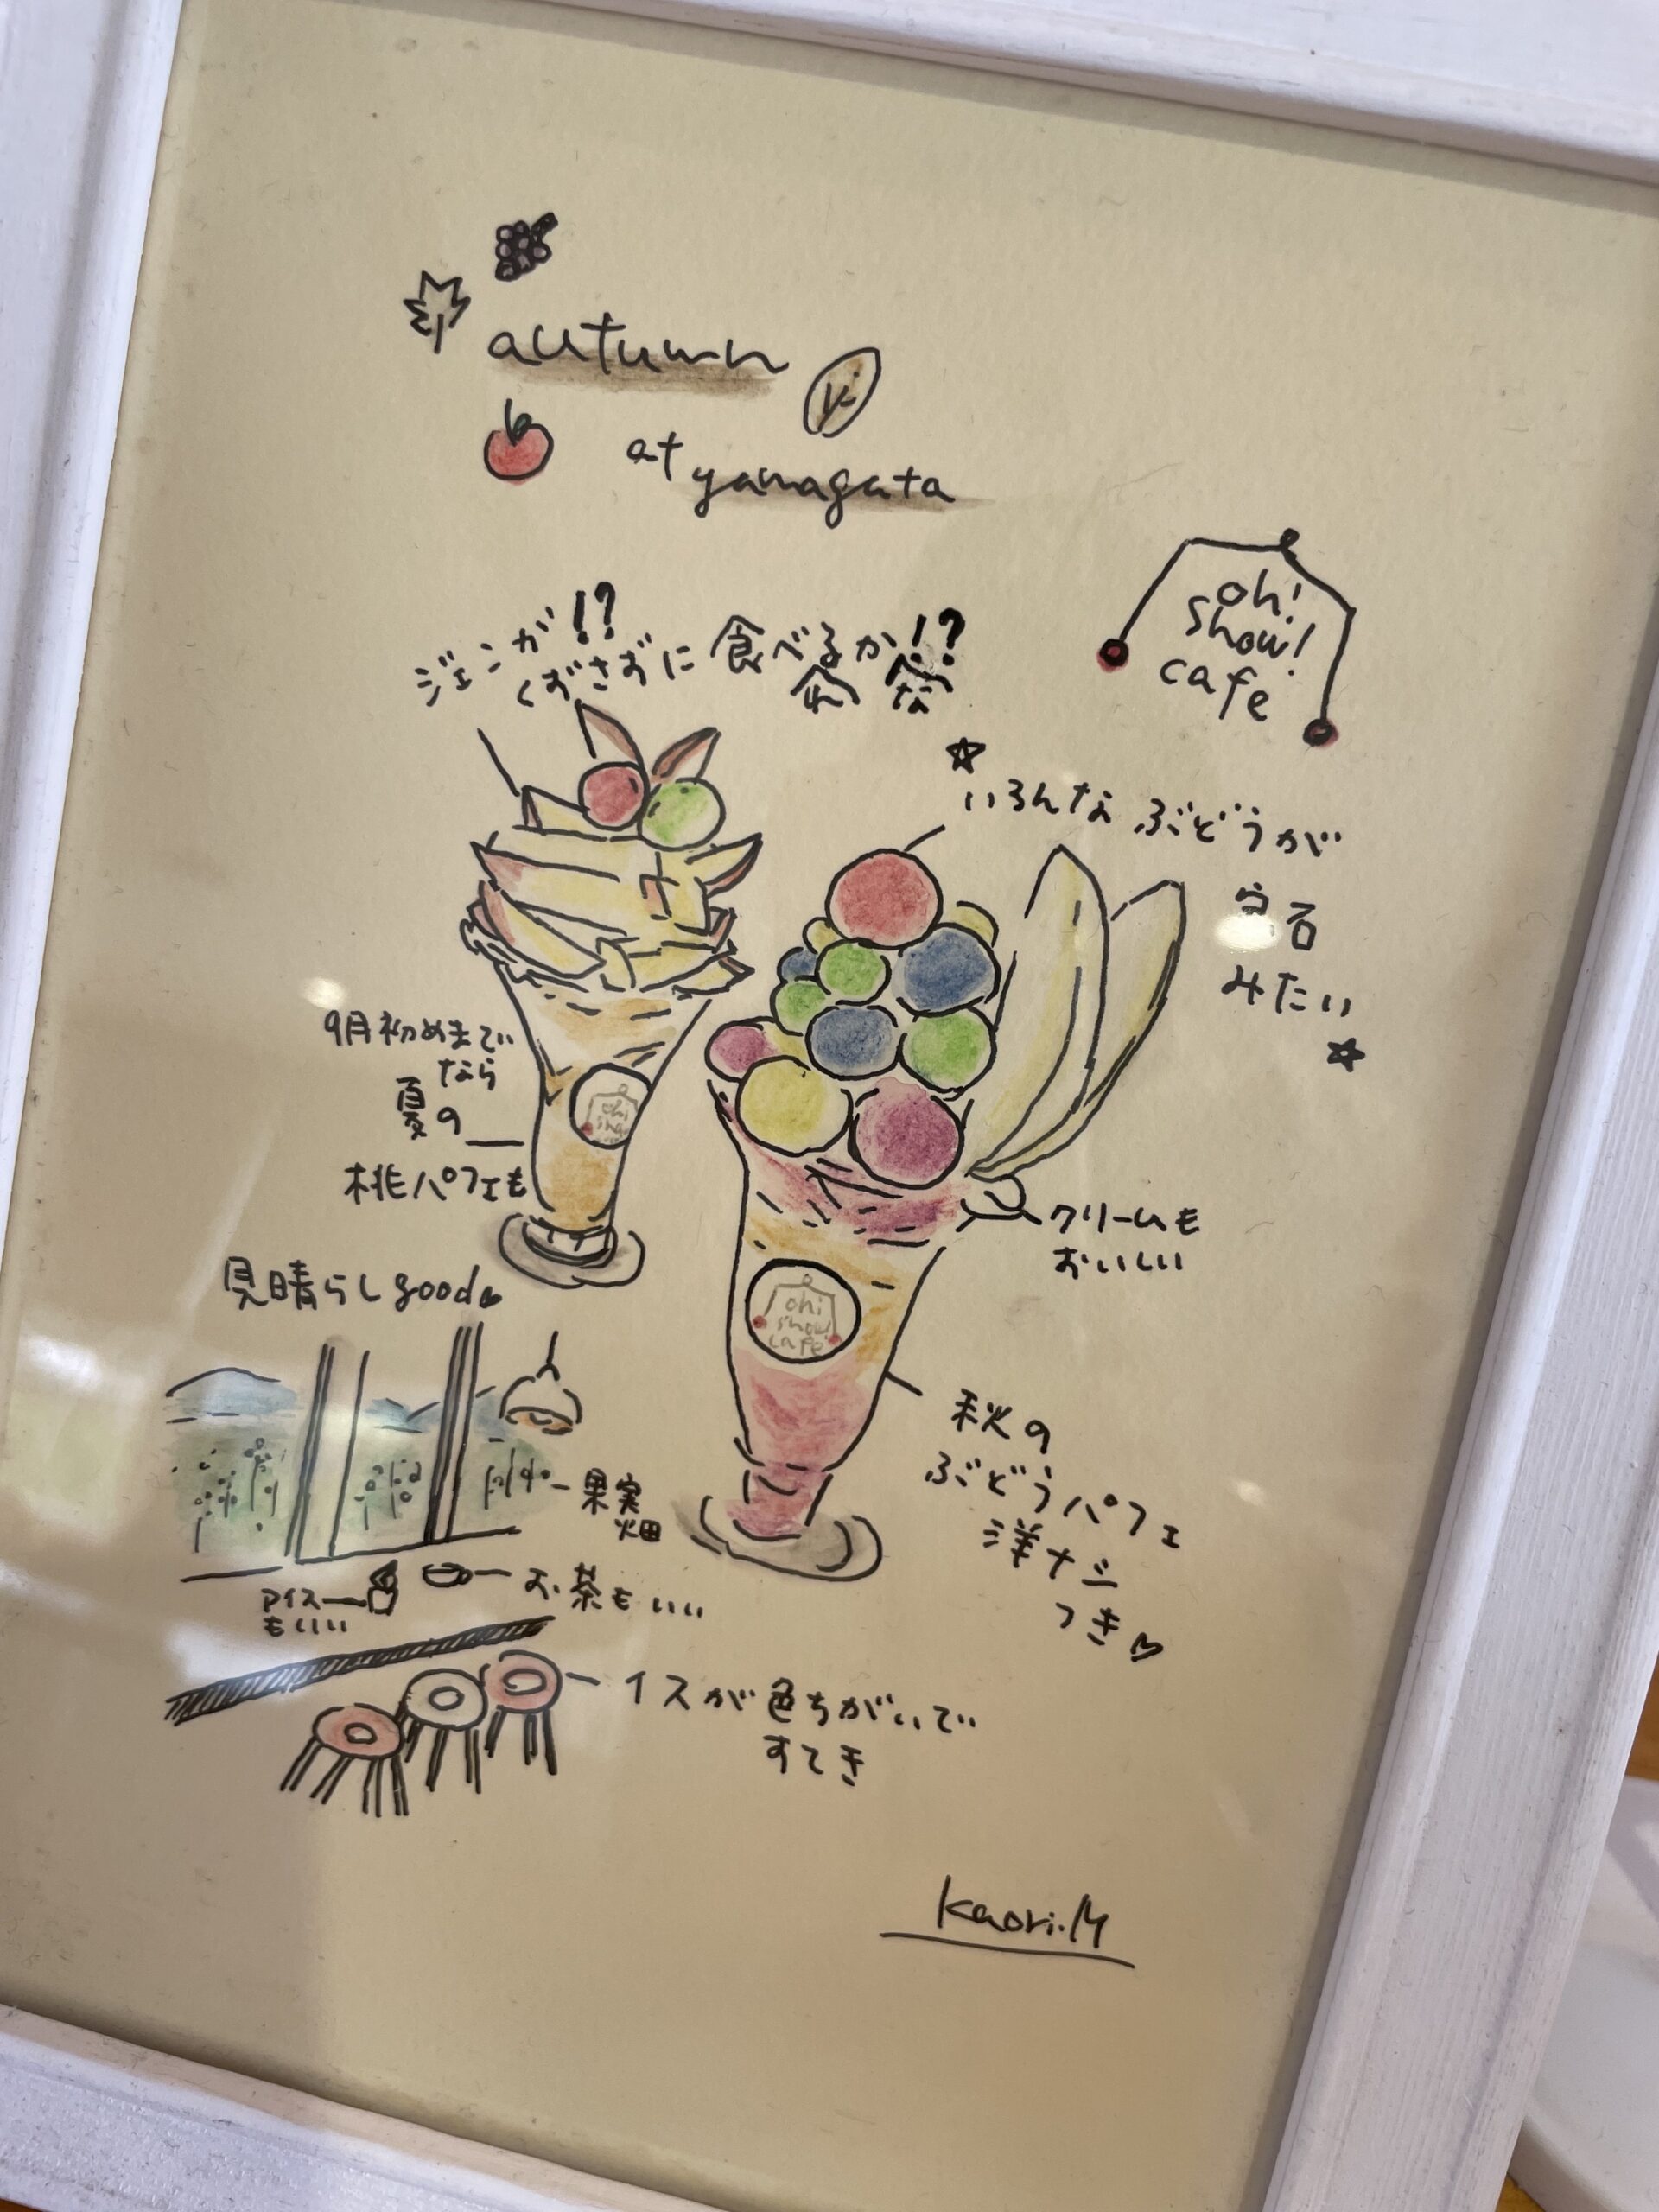 autumn
at yamagata
oh!
show!
cafe
ジェンが!?
くずさずに食べるか!?
いろんなぶどうが
宝石
みたい
9月初めまで
なら
夏の
桃パフェも
oh!
show!
クリームも
おいしい
見晴らしgood
oh!
show!
cafe
秋の
ぶどうパフェ
洋ナシ
つき
果実
畑
アイス
もいい
お茶もいい
イスが色ちがいで
すてき
Kaori.M